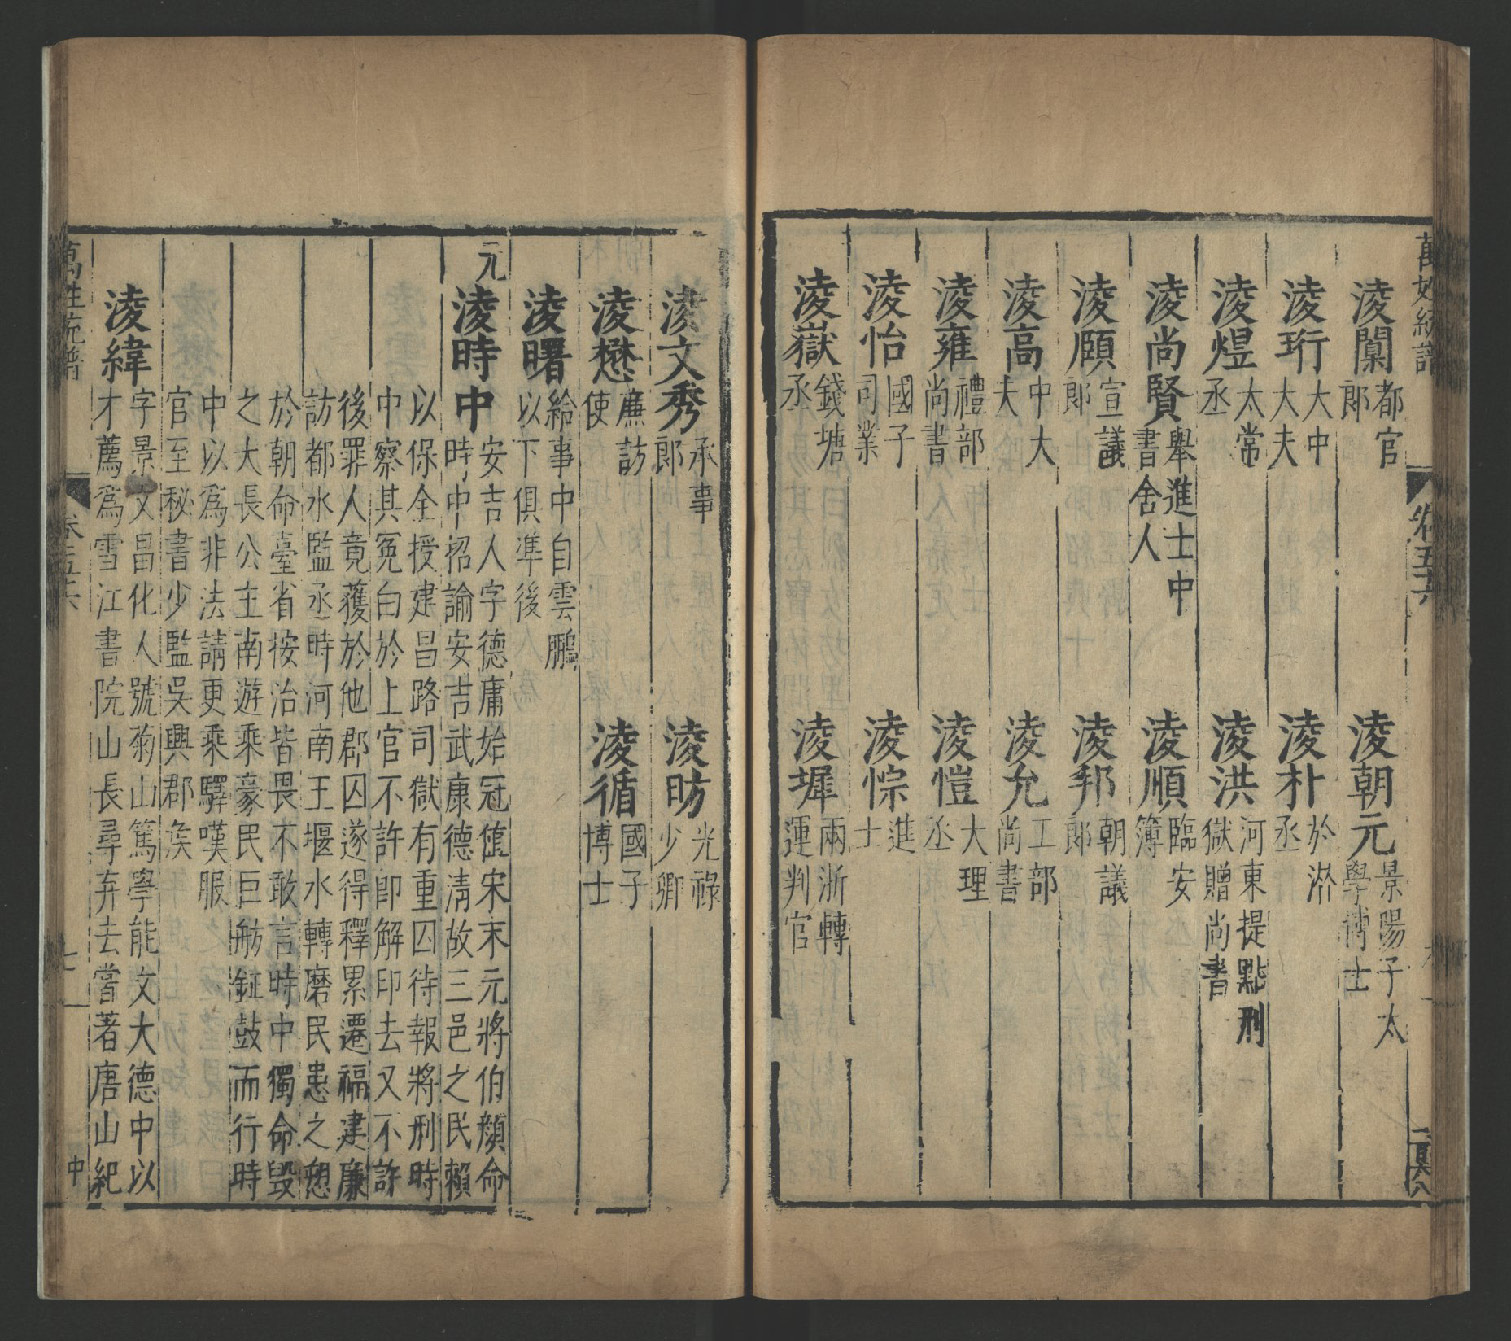 萬姓統譜 卷五十六
淩闌 都官郎 淩朝元 景陽子太學博士
淩珩 大中大夫 淩朴 於潛丞
淩煜 太常丞 淩洪 河東提點刑獄贈尚書
淩尚賢 舉進士中書舍人 淩順 臨安簿
淩願 宣議郎 淩邦 朝議郎
淩高 中大夫 淩允 工部尚書
淩雍 禮部尚書 淩愷 大理丞
淩怡 國子司業 淩悰 進士
淩嶽 錢塘丞 淩墀 兩浙轉運判官
淩文秀 承事郎 淩昉 光祿少卿
淩懋 廉訪使 淩循 國子博士
淩曙 給事中自雲鵬以下俱準後
元
淩時中 安吉人字德庸始冠值宋末元將伯顏命
時中招諭安吉武康德清故三邑之民賴
以保全授建昌路司獄有重囚待報將刑時
中察其冤白於上官不許卽解印去又不許
後罪人竟獲於他郡囚遂得釋累遷福建廉
訪都水監丞時河南王堰水轉磨民患之愬
於朝命臺省按治皆畏不敢言時中獨命毀
之大長公主南遊乘豪民巨舫鉦鼓而行時
中以爲非法請更乘驛嘆服
官至秘書少監吳興郡矦
淩緯 字景文昌化人號 山篤學能文大德中以
才薦爲雪江書院山長尋弃去嘗著唐山紀
萬姓統譜 卷五十六 七 中